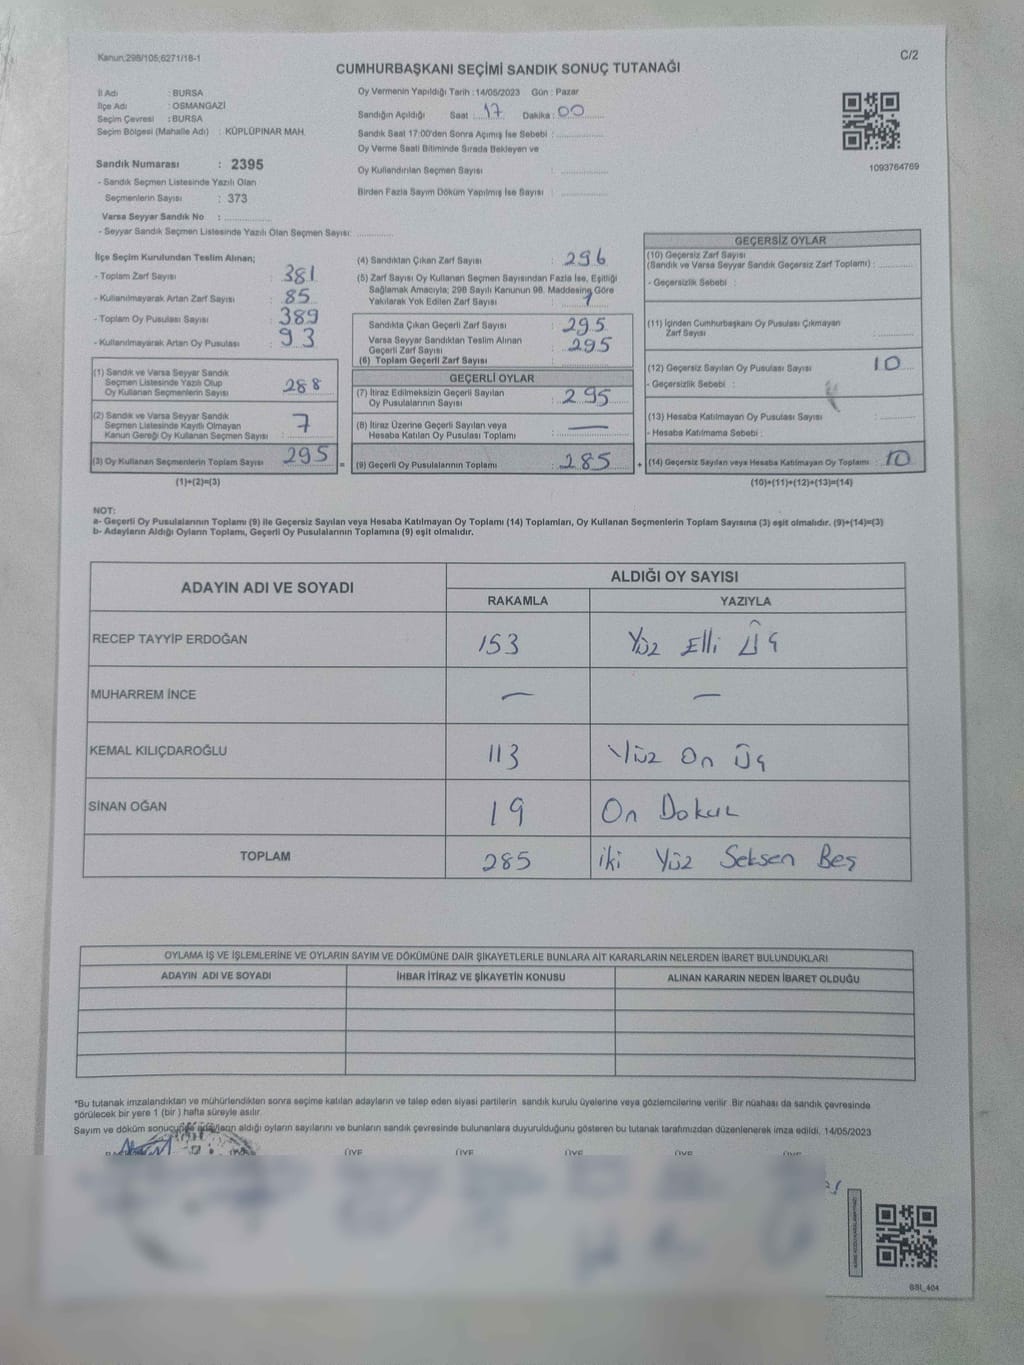 Kanun;298/105;6271/18-1
C/2
CUMHURBAŞKANI SEÇİMİ SANDIK SONUÇ TUTANAĞI
İl Adı : BURSA
İlçe Adı : OSMANGAZİ
Seçim Çevresi : BURSA
Seçim Bölgesi (Mahalle Adı) : KÜPLÜPINAR MAH.
Sandık Numarası : 2395
- Sandık Seçmen Listesinde Yazılı Olan
Seçmenlerin Sayısı : 373
Varsa Seyyar Sandık No :
- Seyyar Sandık Seçmen Listesinde Yazılı Olan Seçmen Sayısı:
Oy Vermenin Yapıldığı Tarih : 14/05/2023 Gün : Pazar
Sandığın Açıldığı Saat : 17 Dakika : 00
Sandık Saat 17:00'den Sonra Açılmış İse Sebebi :
Oy Verme Saati Bitiminde Sırada Bekleyen ve
Oy Kullandırılan Seçmen Sayısı :
Birden Fazla Sayım Döküm Yapılmış İse Sayısı :
1093764769
İlçe Seçim Kurulundan Teslim Alınan;
- Toplam Zarf Sayısı : 381
- Kullanılmayarak Artan Zarf Sayısı : 85
- Toplam Oy Pusulası Sayısı : 389
- Kullanılmayarak Artan Oy Pusulası : 93
(1) Sandık ve Varsa Seyyar Sandık
Seçmen Listesinde Yazılı Olup
Oy Kullanan Seçmenlerin Sayısı : 288
(2) Sandık ve Varsa Seyyar Sandık
Seçmen Listesinde Kayıtlı Olmayan
Kanun Gereği Oy Kullanan Seçmen Sayısı : 7
(3) Oy Kullanan Seçmenlerin Toplam Sayısı : 295
(1)+(2)=(3)
(4) Sandıktan Çıkan Zarf Sayısı : 296
(5) Zarf Sayısı Oy Kullanan Seçmen Sayısından Fazla İse, Eşitliği
Sağlamak Amacıyla; 298 Sayılı Kanunun 98. Maddesine Göre
Yakılarak Yok Edilen Zarf Sayısı : 1
Sandıkta Çıkan Geçerli Zarf Sayısı : 295
Varsa Seyyar Sandıktan Teslim Alınan
Geçerli Zarf Sayısı : 295
(6) Toplam Geçerli Zarf Sayısı :
GEÇERLİ OYLAR
(7) İtiraz Edilmeksizin Geçerli Sayılan
Oy Pusulalarının Sayısı : 295
(8) İtiraz Üzerine Geçerli Sayılan veya
Hesaba Katılan Oy Pusulası Toplamı : —
= (9) Geçerli Oy Pusulalarının Toplamı : 285
GEÇERSİZ OYLAR
(10) Geçersiz Zarf Sayısı
(Sandık ve Varsa Seyyar Sandık Geçersiz Zarf Toplamı) :
- Geçersizlik Sebebi :
(11) İçinden Cumhurbaşkanı Oy Pusulası Çıkmayan
Zarf Sayısı :
(12) Geçersiz Sayılan Oy Pusulası Sayısı : 10
- Geçersizlik Sebebi :
(13) Hesaba Katılmayan Oy Pusulası Sayısı :
- Hesaba Katılmama Sebebi :
+ (14) Geçersiz Sayılan veya Hesaba Katılmayan Oy Toplamı : 10
(10)+(11)+(12)+(13)=(14)
NOT:
a- Geçerli Oy Pusulalarının Toplamı (9) ile Geçersiz Sayılan veya Hesaba Katılmayan Oy Toplamı (14) Toplamları, Oy Kullanan Seçmenlerin Toplam Sayısına (3) eşit olmalıdır. (9)+(14)=(3)
b- Adayların Aldığı Oyların Toplamı, Geçerli Oy Pusulalarının Toplamına (9) eşit olmalıdır.
ADAYIN ADI VE SOYADI
ALDIĞI OY SAYISI
RAKAMLA YAZIYLA
RECEP TAYYİP ERDOĞAN 153 Yüz Elli Üç
MUHARREM İNCE — —
KEMAL KILIÇDAROĞLU 113 Yüz On Üç
SİNAN OĞAN 19 On Dokuz
TOPLAM 285 iki Yüz Seksen Beş
OYLAMA İŞ VE İŞLEMLERİNE VE OYLARIN SAYIM VE DÖKÜMÜNE DAİR ŞİKAYETLERLE BUNLARA AİT KARARLARIN NELERDEN İBARET BULUNDUKLARI
ADAYIN ADI VE SOYADI İHBAR İTİRAZ VE ŞİKAYETİN KONUSU ALINAN KARARIN NEDEN İBARET OLDUĞU
*Bu tutanak imzalandıktan ve mühürlendikten sonra seçime katılan adayların ve talep eden siyasi partilerin sandık kurulu üyelerine veya gözlemcilerine verilir. Bir nüshası da sandık çevresinde
görülecek bir yere 1 (bir) hafta süreyle asılır.
Sayım ve döküm sonucunda adayların aldığı oyların sayılarını ve bunların sandık çevresinde bulunanlara duyurulduğunu gösteren bu tutanak tarafımızdan düzenlenerek imza edildi. 14/05/2023
ÜYE ÜYE ÜYE ÜYE ÜYE
BSI_404